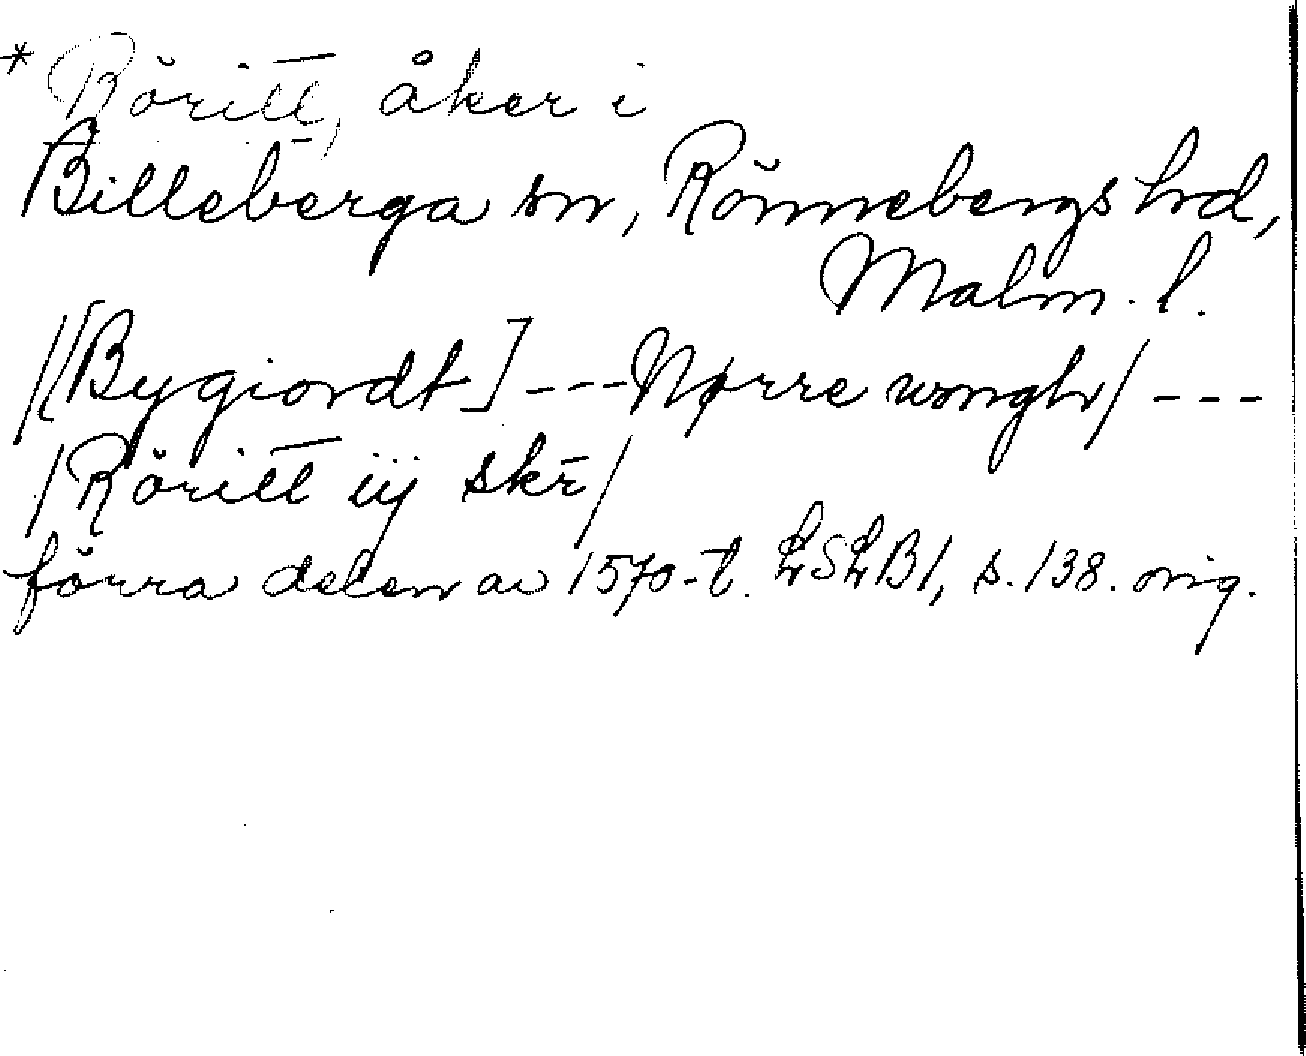 * Röritt, åker i
Billeberga sn, Rönnebergs hd,
Malm. l.
/[Bygiordt] --- Nørre wongh/ ---
/Röritt iij skr̄/
förra delen av 1570-t. LSLB1, s. 138. orig.